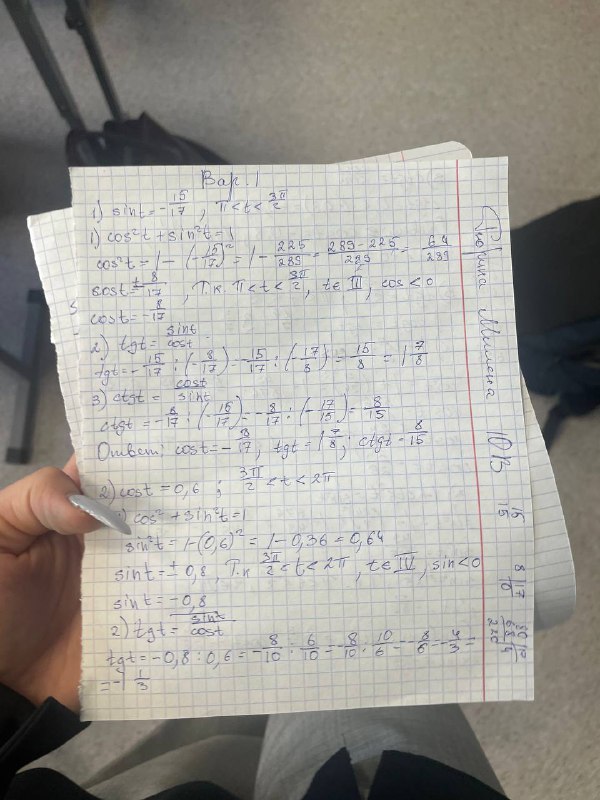 Вар. 1
1) sint = -15/17 , π < t < 3π/2
1) cos²t + sin²t = 1
cos²t = 1 - (-15/17)² = 1 - 225/289 = 289 - 225/289 = 64/289
cost = ± 8/17 , т.к. π < t < 3π/2, t ∈ III, cos < 0
cost = -8/17
2) tgt = sint/cost
tgt = -15/17 : (-8/17) = -15/17 : (-17/8) = 15/8 = 1 7/8
3) ctgt = cost/sint
ctgt = -8/17 : (-15/17) = -8/17 : (-17/15) = 8/15
Ответ: cost = -8/17, tgt = 1 7/8; ctgt = 8/15
2) cost = 0,6 ; 3π/2 < t < 2π
1) cos² + sin²t = 1
sin²t = 1 - (0,6)² = 1 - 0,36 = 0,64
sint = ± 0,8, т.к 3π/2 < t < 2π, t ∈ IV, sin < 0
sint = -0,8
2) tgt = sint/cost
tgt = -0,8 : 0,6 = -8/10 : 6/10 = -8/10 · 10/6 = -8/6 = -4/3 =
= -1 1/3
Милена 10В
15
8 | 7